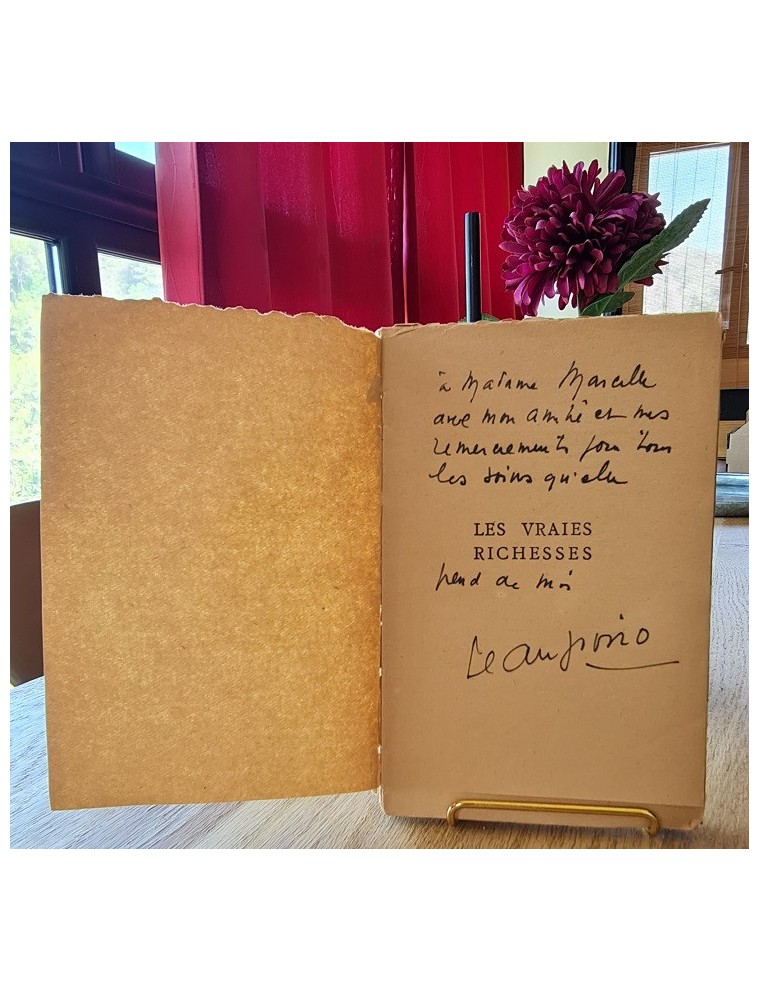 à Madame Marcelle
avec mon amitié et mes
remerciements pour tous
les soins qu'elle
LES VRAIES
RICHESSES
prend de moi
Jean Giono